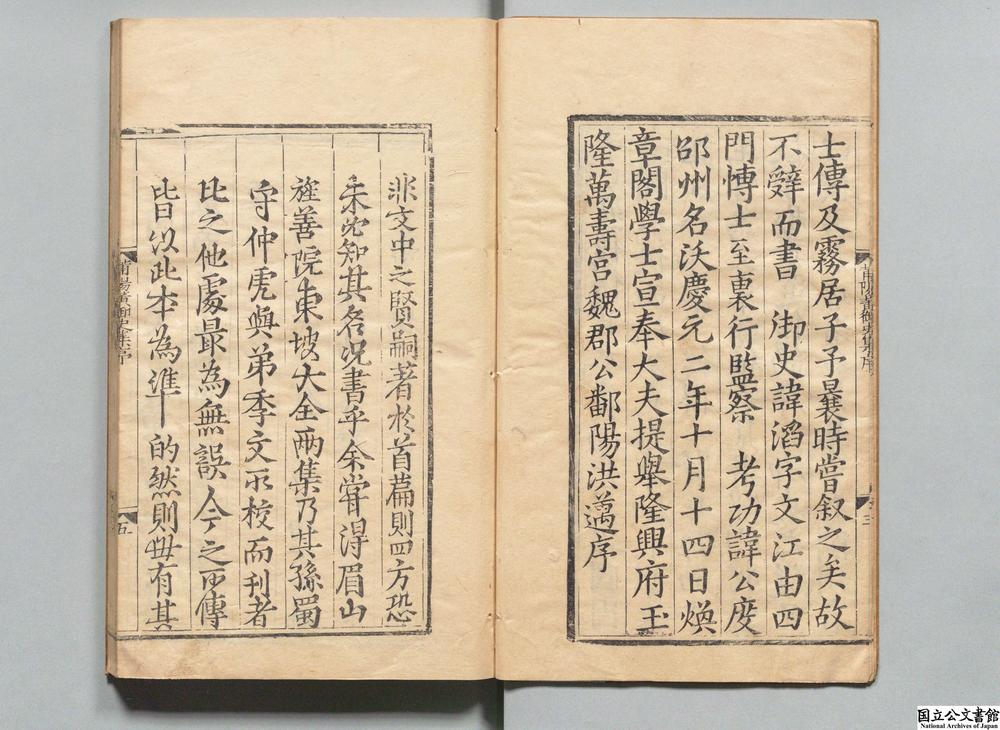 士傳及霧居子予曩時嘗叙之矣故
不辭而書　御史諱滔字文江由四
門博士至裏行監察　考功諱公度
邵州名沃慶元二年十月十四日煥
章閣學士宣奉大夫提舉隆興府玉
隆萬壽宮魏郡公鄱陽洪邁序
非文中之賢嗣著於首篇則四方恐
未必知其名况書乎余嘗得眉山
旌善院東坡大全兩集乃其孫蜀
守仲虎與弟季文所校而刊者
比之他處最為無誤今之所傳
皆以此本為準的然則毋有其
五
国立公文書館
National Archives of Japan